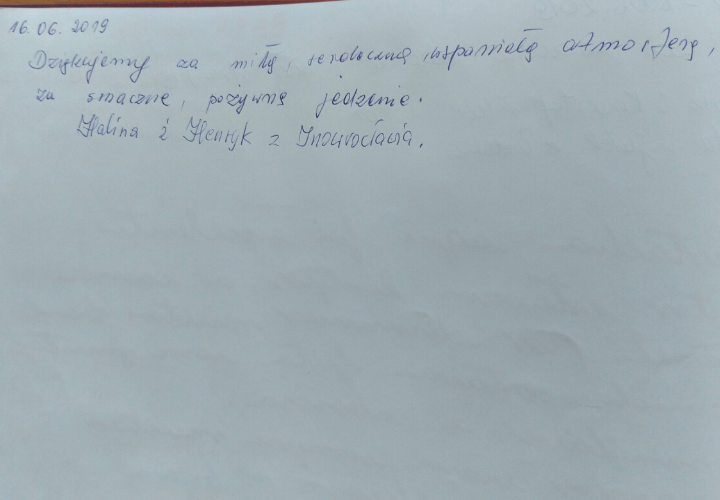 16.06.2019
Dziękujemy za miłą, serdeczną, wspaniałą atmosferę,
za smaczne, pożywne jedzenie.
Halina i Henryk z Inowrocławia.